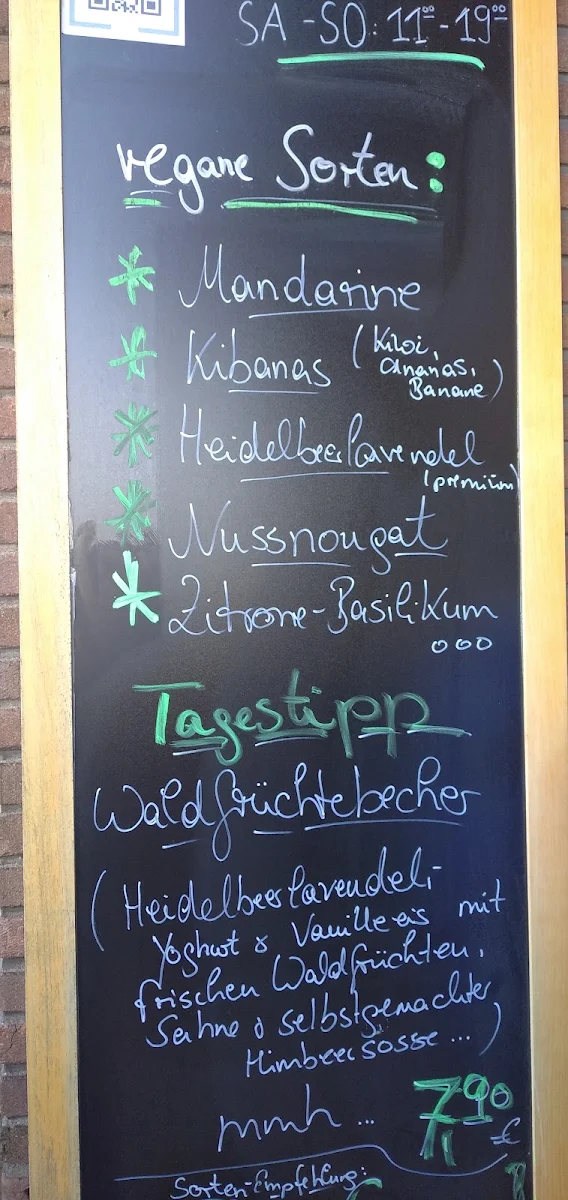 SA - SO: 11⁰⁰ - 19⁰⁰
vegane Sorten:
* Mandarine
* Kibanas (Kiwi,
Ananas,
Banane)
* Heidelbeerlavendel
(premium)
* Nussnougat
* Zitrone-Basilikum
ooo
Tagestipp
Waldfrüchtebecher
(Heidelbeerlavendel-,
Joghurt & Vanilleeis mit
frischen Waldfrüchten,
Sahne & selbstgemachter
Himbeersosse ...)
mmh ... 7,90
€
Sorten-Empfehlung: